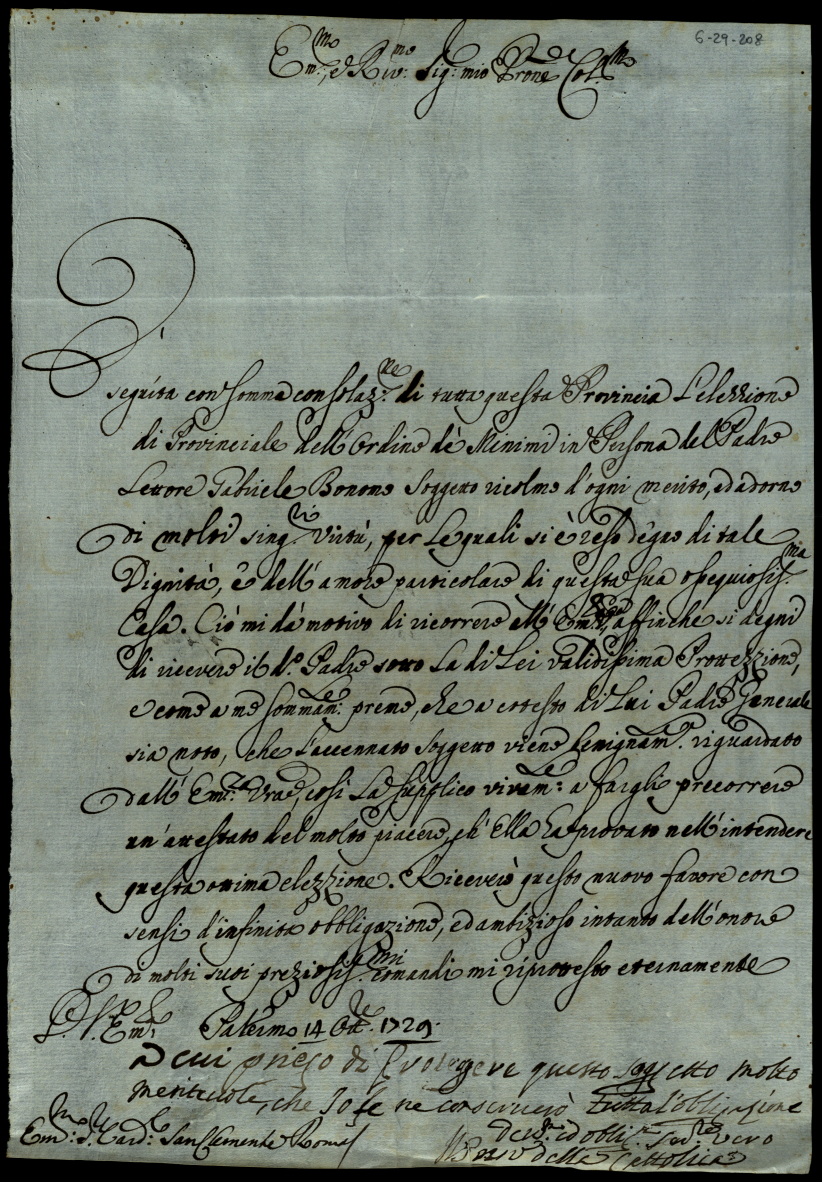 6-29-208
Em:mo, e Rev:mo Sig:re mio Prone Col:mo
È
seguita con somma consolaz:ne di tutta questa Provincia l'elezzione
di Provinciale dell'Ordine dè Minimi in Persona del Padre
Lettore Gabriele Bonomo Soggetto ricolmo d'ogni merito, ed adorno
di molti sing:ri Virtù, per le quali si è reso degno di tale
Dignità, e dell'amore particolare di questa sua ossequiosis:ma
Casa. Ciò mi dà motivo di ricorrere all'Em: affinche si degni
di ricevere il d.o Padre sotto la di Lei validissima Prottezzione,
e come a me sommam:te preme, che a cotesto di Lui Padre Generale
sia noto, che l'accennato Soggetto viene benignam.e riguardato
dall'Em:za Vra, così La supplico vivam:te a fargli precorrere
un'attestato del molto piacere, ch'Ella ha provato nell'intendere
questa ottima elezzione. Riceverò questo nuovo favore con
sensi d'infinita obbligazione, ed ambizioso intanto dell'onore
di molti suoi preziosis:mi comandi mi riprotesto eternamente
D. V. Em:za Palermo 14 Ott:re 1729.
A cui priego di proteggere questo soggetto molto
meritevole, che Io le ne conserverò tutta l'obligazione
Em:mo S.r Card:le San Clemente Roma
Dev:mo ed obli:mo Ser:re Vero
della Cattolica